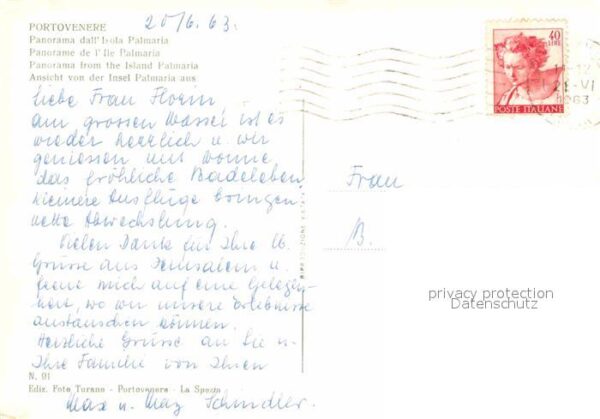 20/6. 63.
PORTOVENERE
Panorama dall'Isola Palmaria
Panorame de l'Ile Palmaria
Panorama from the Island Palmaria
Ansicht von der Insel Palmaria aus
40
LIRE
POSTE ITALIANE
21-VI
963
Liebe Frau
am grossen Wasser ist es
wieder herrlich u. wir
geniessen mit Wonne
das fröhliche Badeleben,
kleinere Ausflüge bringen
nette Abwechslung.
Vielen Dank für Ihre lb.
Grüsse aus Jerusalem u.
freue mich auf eine Gelegen-
heit, wo wir unsere Erlebnisse
austauschen können.
Herzliche Grüsse an Sie u.
Ihre Familie von Ihren
Max u. Schindler.
Frau
B.
privacy protection
Datenschutz
N. 91
Ediz. Foto Turano - Portovenere - La Spezia